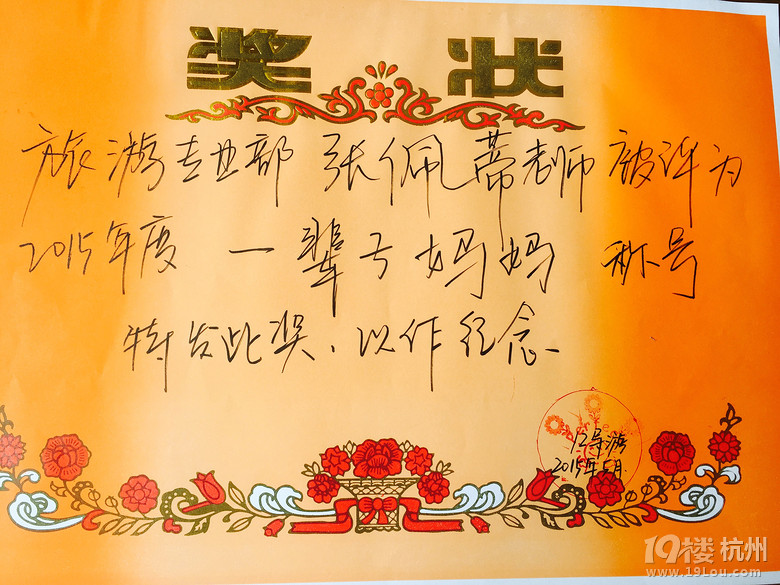 奖 状
旅游专业部 张佩蒂老师 被评为
2015年度 一辈子妈妈 称号
特发此奖、以作纪念
12导游
2015年5月.
19楼 杭州
www.19Lou.com